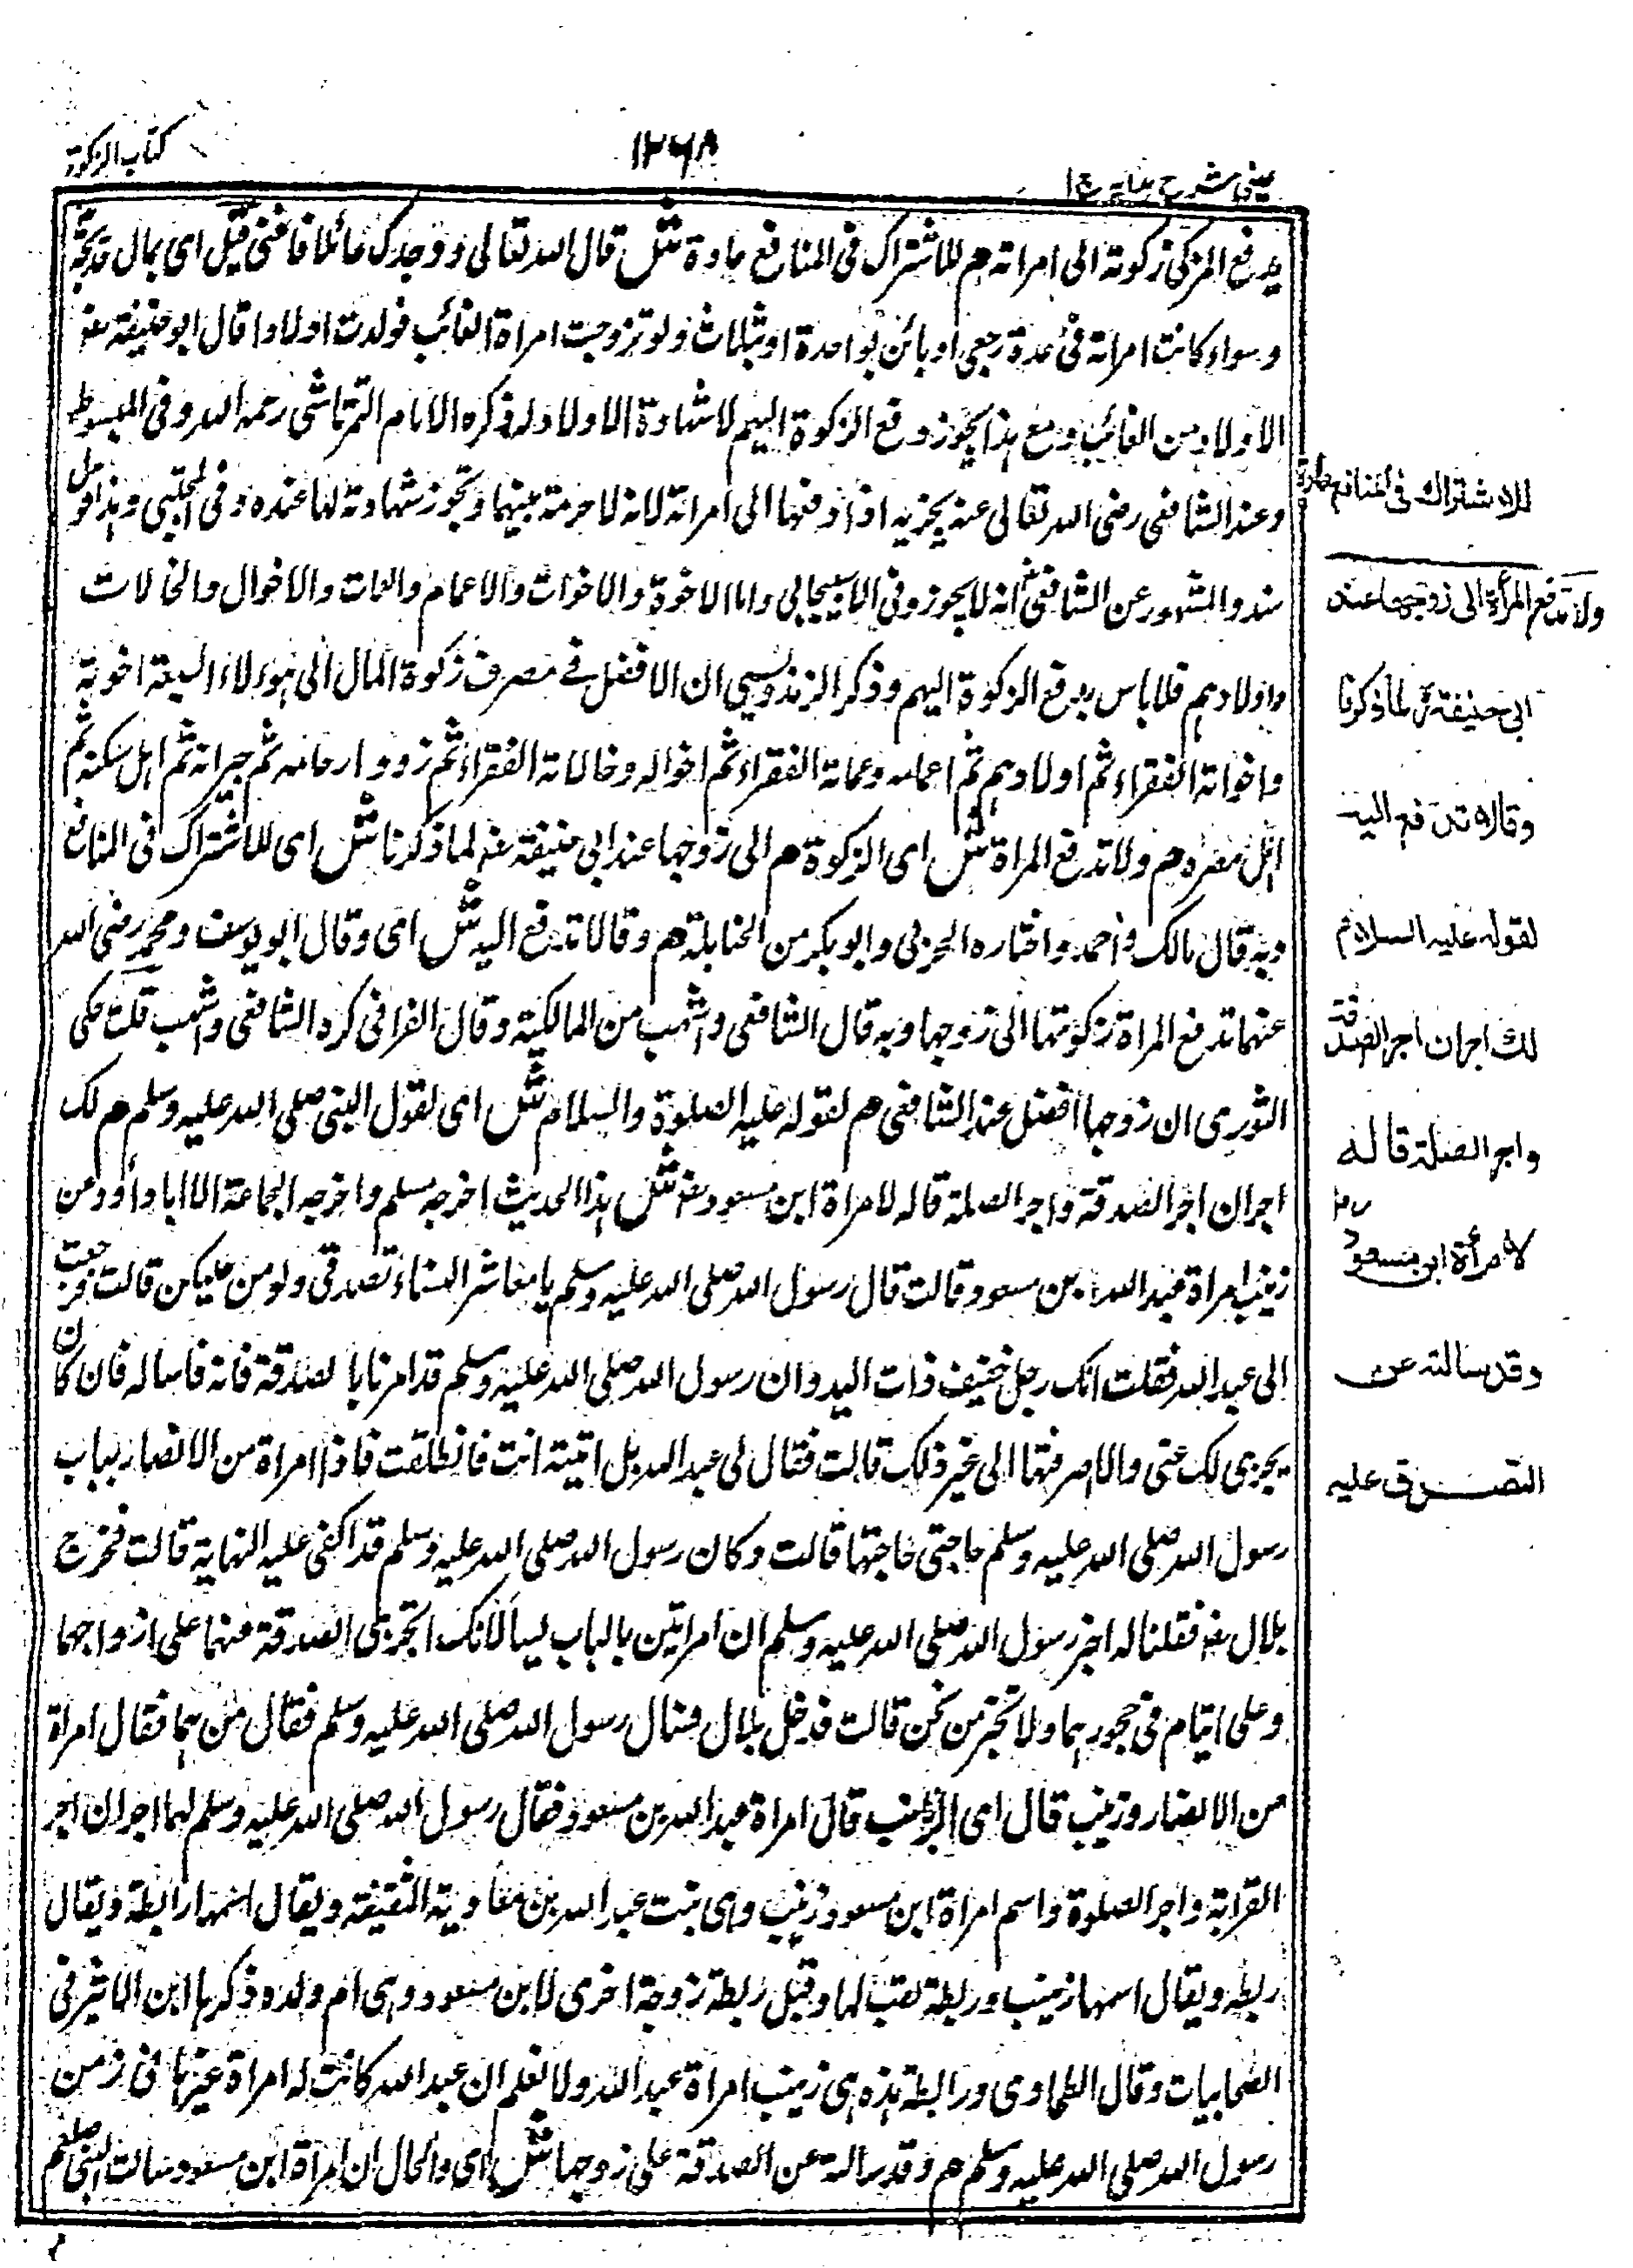 عینی شرح ہدایہ ج ١
١٢٦٨
کتاب الزکوة
یدفع المزکی زکوته الی امراته هم للاشتراک فی المنافع عادة ش قال الله تعالی ووجدک عائلا فاغنی قیل ای بمال خدیجة
وسواء کانت امراته فی عدة رجعی او بائن بواحدة او بثلاث ولو تزوجت امراة الغائب فولدت اولادا قال ابو حنیفة رض
الاولاد من الغائب ومع هذا یجوز دفع الزکوة الیهم لا شهادة الاولاد له ذکره الامام التمرتاشی رحمه الله وفی المبسوط
وعند الشافعی رضی الله تعالی عنه یجزیه اذا دفنها الی امراته لانه لا حرمة بینهما وتجوز شهادته لها عنده وفی المجتبی وهذا قول
سند والمشهور عن الشافعی انه لا یجوز وفی الاسبیجابی واما الاخوة والاخوات والاعمام والعمات والاخوال والخالات
واولادهم فلا باس بدفع الزکوة الیهم وذکر الزندویسی ان الافضل فے مصرف زکوة المال الی هؤلاء السبعة اخوته
واخواته الفقراء ثم اولادهم ثم اعمامه وعماته الفقراء ثم اخواله وخالاته الفقراء ثم ذوو ارحامه ثم جیرانه ثم اهل سکنه ثم
اهل مصره هم ولا تدفع المراة ش ای الزکوة هم الی زوجها عند ابی حنیفة رض لما ذکرنا ش ای للاشتراک فی المنافع
وبه قال مالک واحمد واختاره الخرقی وابو بکر من الحنابلة هم وقالا تدفع الیه ش ای وقال ابو یوسف ومحمد رضی الله
عنهما تدفع المراة زکوتها الی زوجها وبه قال الشافعی واشهب من المالکیة وقال القرافی کره الشافعی واشهب قلت حکی
الثوری ان زوجها افضل عند الشافعی هم لقوله علیه الصلوة والسلام ش ای لقول النبی صلی الله علیه وسلم هم لک
اجران اجر الصدقة واجر الصلة قاله لامراة ابن مسعود رض ش هذا الحدیث اخرجه مسلم واخرجه الجماعة الا ابا داود عن
زینب امراة عبد الله بن مسعود قالت قال رسول الله صلی الله علیه وسلم یا معاشر النساء تصدقی ولو من حلیکن قالت فرجعت
الی عبد الله فقلت انک رجل خفیف ذات الید وان رسول الله صلی الله علیه وسلم قد امرنا بالصدقة فاته فاساله فان کان
یجزی لک عنی والا صرفتها الی غیر ذلک قالت فقال لی عبد الله بل اتیته انت فانطلقت فاذا امراة من الانصار بباب
رسول الله صلی الله علیه وسلم حاجتی حاجتها قالت وکان رسول الله صلی الله علیه وسلم قد اکفی علیه النهایة قالت فخرج
بلال رض فقلنا له اخبر رسول الله صلی الله علیه وسلم ان امراتین بالباب لیسالانک اتجزئ الصدقة عنهما علی ازواجهما
وعلی ایتام فی حجورهما ولا تخبر من نحن قالت فدخل بلال فسال رسول الله صلی الله علیه وسلم فقال من هما فقال امراة
من الانصار وزینب قال ای الزینب قال امراة عبد الله بن مسعود فقال رسول الله صلی الله علیه وسلم لهما اجران اجر
القرابة واجر الصلوة واسم امراة ابن مسعود زینب وهی بنت عبد الله بن معاویة الثقیفة ویقال اسمها رابطة ویقال
ریطه ویقال اسمها زینب وریطة لقب لها وقیل ریطة زوجة اخری لابن مسعود وهی ام ولده ذکرها ابن الاثیر فی
الصحابیات وقال الطحاوی ورابطة هذه هی زینب امراة عبد الله ولا نعلم ان عبد الله کانت له امراة غیرها فی زمن
رسول الله صلی الله علیه وسلم هم وقد سالته عن الصدقة علی زوجها ش ای والحال ان امراة ابن مسعود سالت النبی صلعم
للاشتراك فی المنافع عادة
ولا تدفع المرأة الی زوجها عند
ابی حنیفة رح لما ذکرنا
وقالا تدفع الیه
لقوله علیه السلام
لك اجران اجر الصدقة
واجر الصلة قاله
لامرأة ابن مسعود رض
وقد سالته عن
التصدق علیه